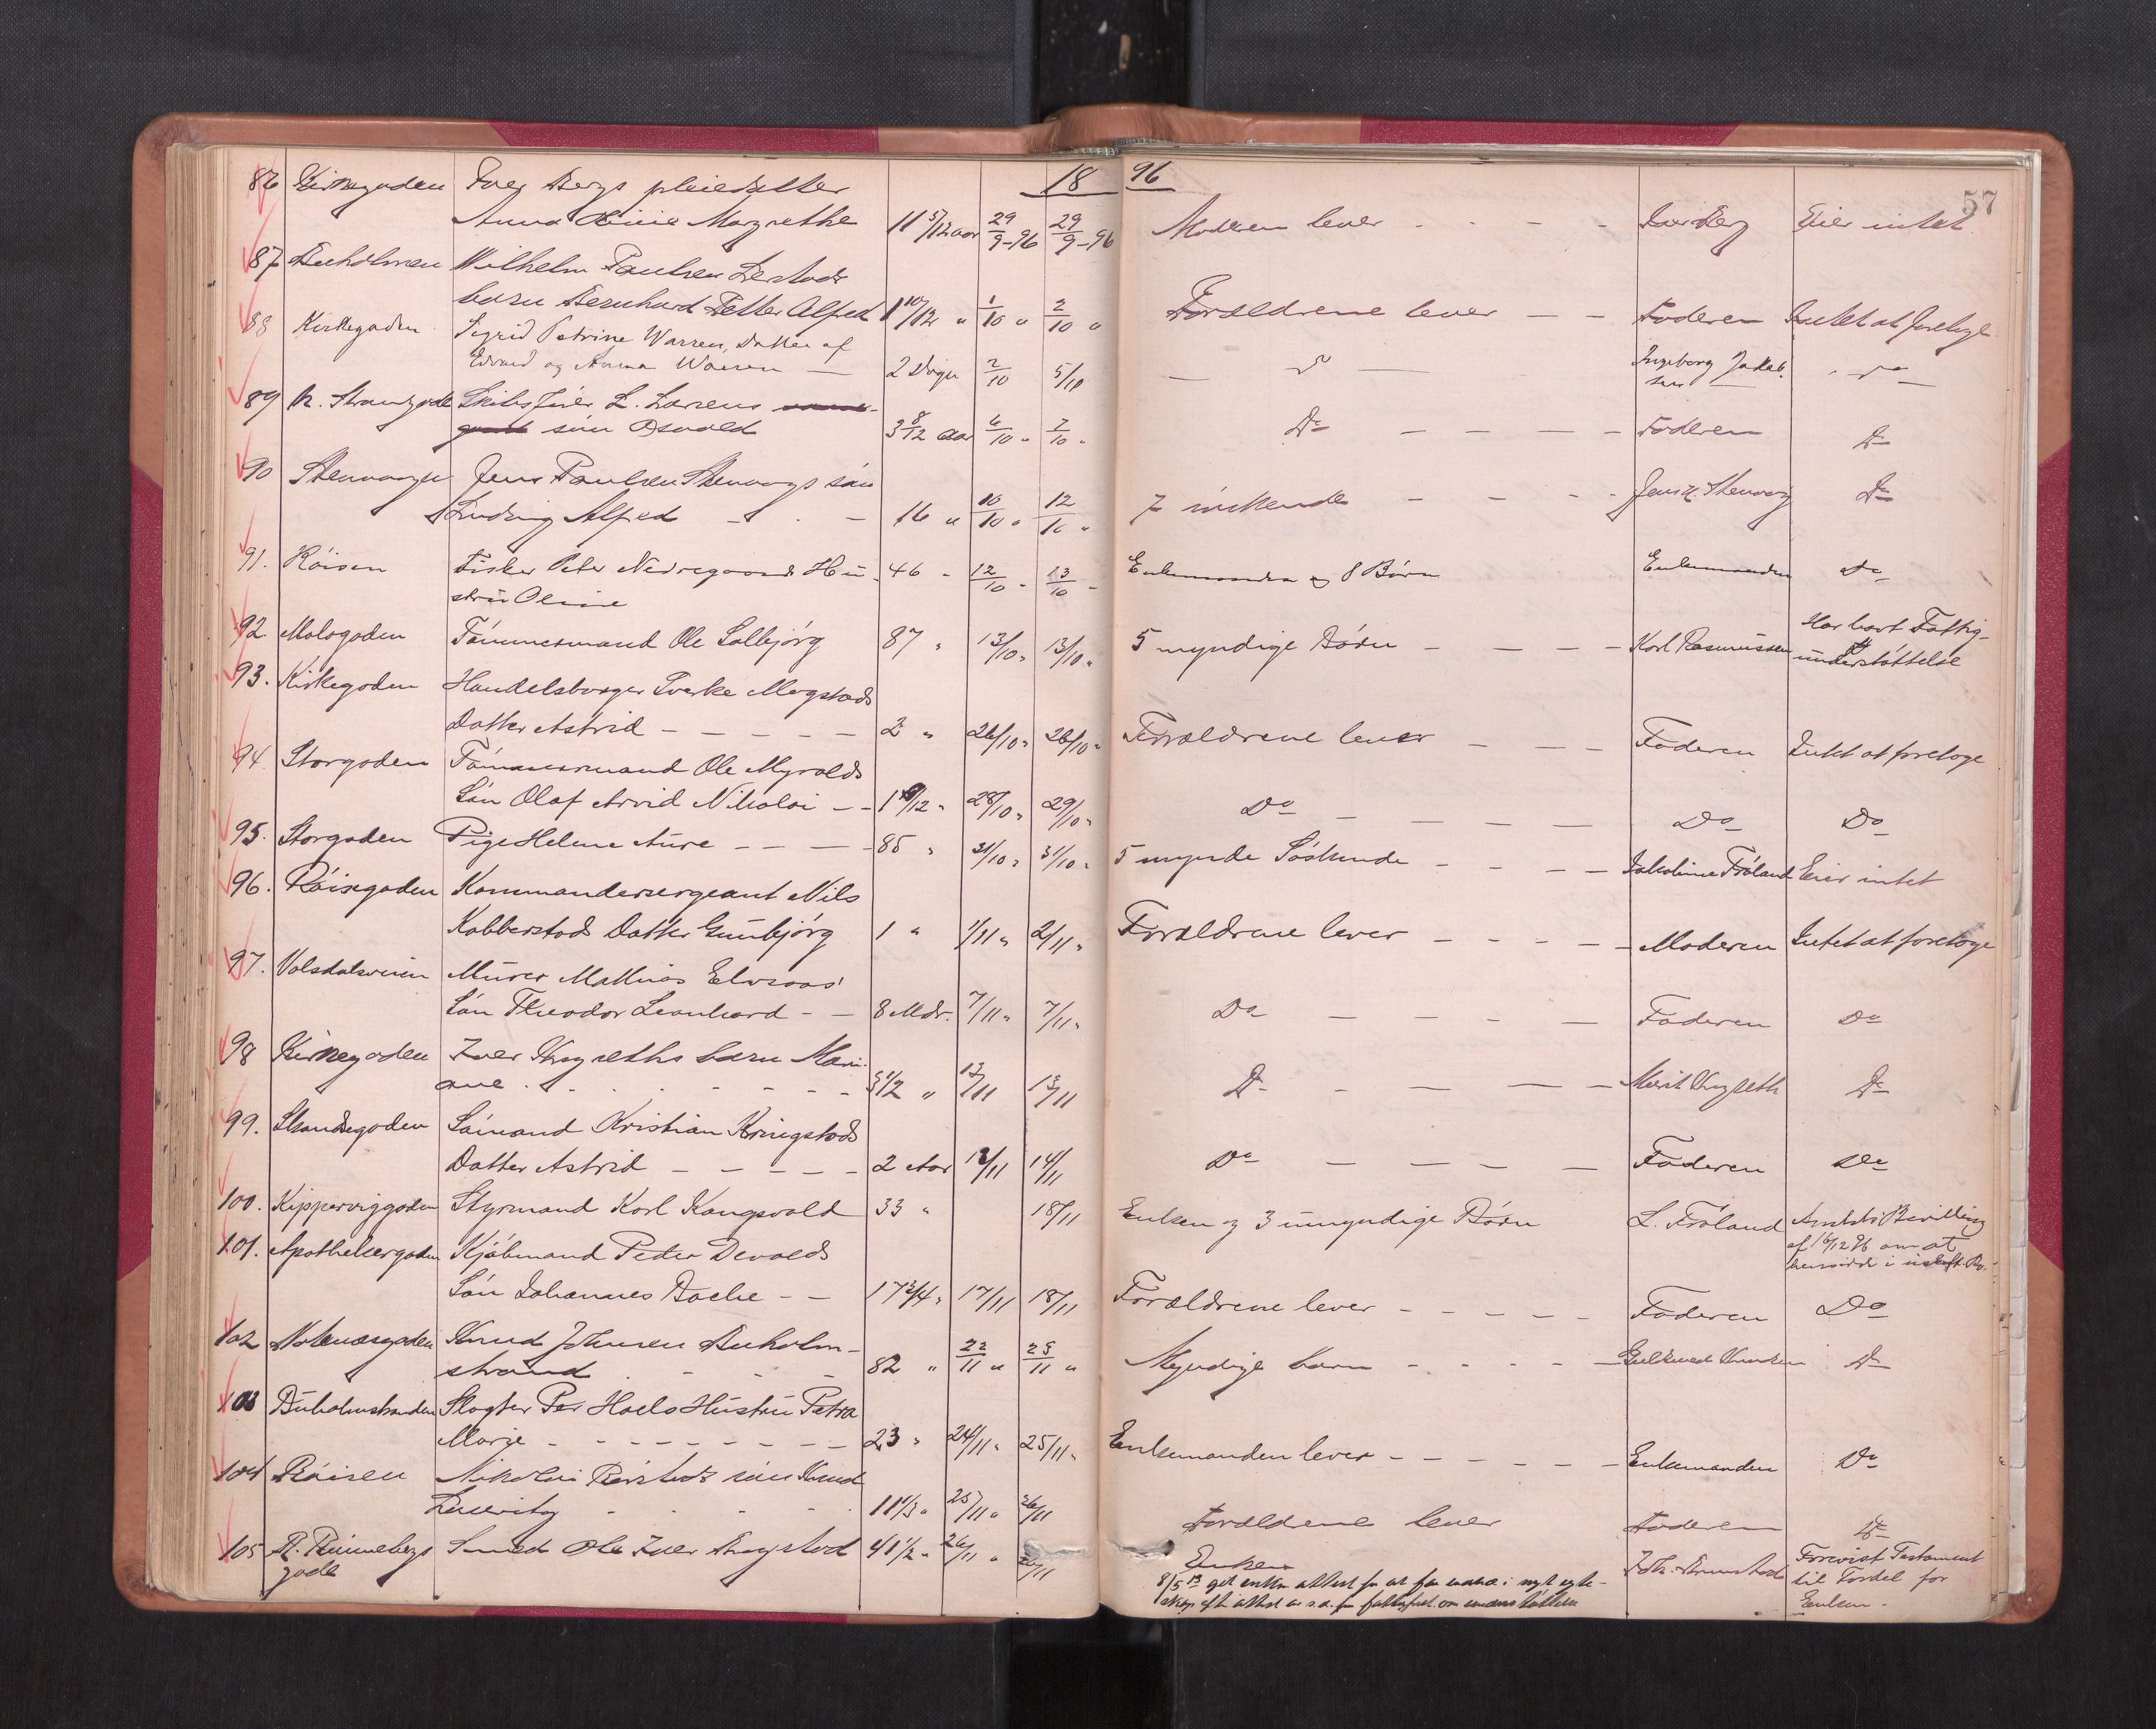 18 96
57
86 Kirkegaden Iver Bergs pleiedatter
Anna Oline Margrethe 11 5/12 aar 29/9-96 29/9-96 Moderen lever - - - Iver Berg Eier intet
87 Buholmen Wilhelm Paulsen
barn Bernhard Petter Alfred 1 10/12 " 1/10 " 2/10 " Forældrene lever — — Faderen Intet at foretage
88 Kirkegaden Sigrid Petrine Warren, Datter af
Edvard og Anna Warren — 2 Døgn 2/10 5/10 — Do Ingeborg Jakob-
sen — Do —
89 N. Strandgade Skibsfører L. Larsens
søn Osvald 3 8/12 aar 6/10 " 7/10 " Do — — — — Faderen Do
90 Stenvaagen Jens Paulsen Stenvaags søn
Ludvig Alfred - . - 16 " 10/10 " 12/10 " 7 søskende - - - - Jens Stenvaag Do
91. Røisen Fisker Peter Nedregaards Hu- 46 " 12/10 " 13/10 " Enkemanden og 8 Børn Enkemanden Do
stru Oline
92. Mologaden Tømmermand Ole Solbjørg 87 " 13/10 " 13/10 " 5 myndige Børn — — — — Karl Rasmussen Har havt Fattig-
understøttelse
93. Kirkegaden Handelsborger Sverke Mogstads
Datter Astrid — — — — — 2 " 26/10 " 26/10 " Forældrene lever — — — Faderen Intet at foretage
94. Storgaden Tømmermand Ole Myrolds
Søn Olaf Arvid Nikolai — — 1 /12 " 28/10 " 29/10 " Do — — — — Do Do
95. Storgaden Pige Helene Aure — — — — 85 " 31/10 " 31/10 " 5 mynde Søskende — — — — Jakobine Frøland Eier intet
96. Røisegaden Kommandersergeant Nils
Kobberstads Datter Gunbjørg 1 " 1/11 " 2/11 " Forældrene lever — — — — Moderen Intet at foretage
97. Volsdalsveien Murer Mathias Elvsaas'
Søn Theodor Leonhard - — 8 Mdr. 7/11 " 7/11 " Do — — — — Faderen Do
98 Kirkegaden Iver barn Mari-
ane . - - - - - - 3 1/2 " 13/11 13/11 Do - — — — Marit Do
99. Strandegaden Sømand Kristian Kringstads
Datter Astrid — — — — — 2 Aar 12/11 14/11 Do — — — — Faderen Do
100. Kipperviggaden Styrmand Karl Kongsvold 33 " 18/11 Enken og 3 umyndige Børn L. Frøland Amtets Bevilling
af 16/12 96 om at
hensidde i uskift. Bo.
101. Apothekergaden Kjøbmand Peter Devolds
Søn Johannes Bache — — 17 3/4 " 17/11 18/11 Forældrene lever — — — — Faderen Do
102 Notenæsgaden Knud Johnsen Buholm-
strand . - - - 82 " 22/11 " 25/11 " Myndige børn - - - - — Knutsen Do
103 Buholmstranden Slagter Per Hoels Hustru Petra
Marie - - - - - - - - 23 " 24/11 " 25/11 " Enkemanden lever — — — — — Enkemanden Do
104 Røisen Nikolai Rørstads søn Knud
Ludvig - - - - 11 1/3 " 25/11 " 26/11 Forældrene lever Faderen Do
105 R. Rønnebergs Smed Ole Iver 41 1/2 " 26/11 " 26/11 Enken Forevist Testament
gade til Fordel for
8/5 13 git enken attest for at for i nyt egte- Enken.
skap